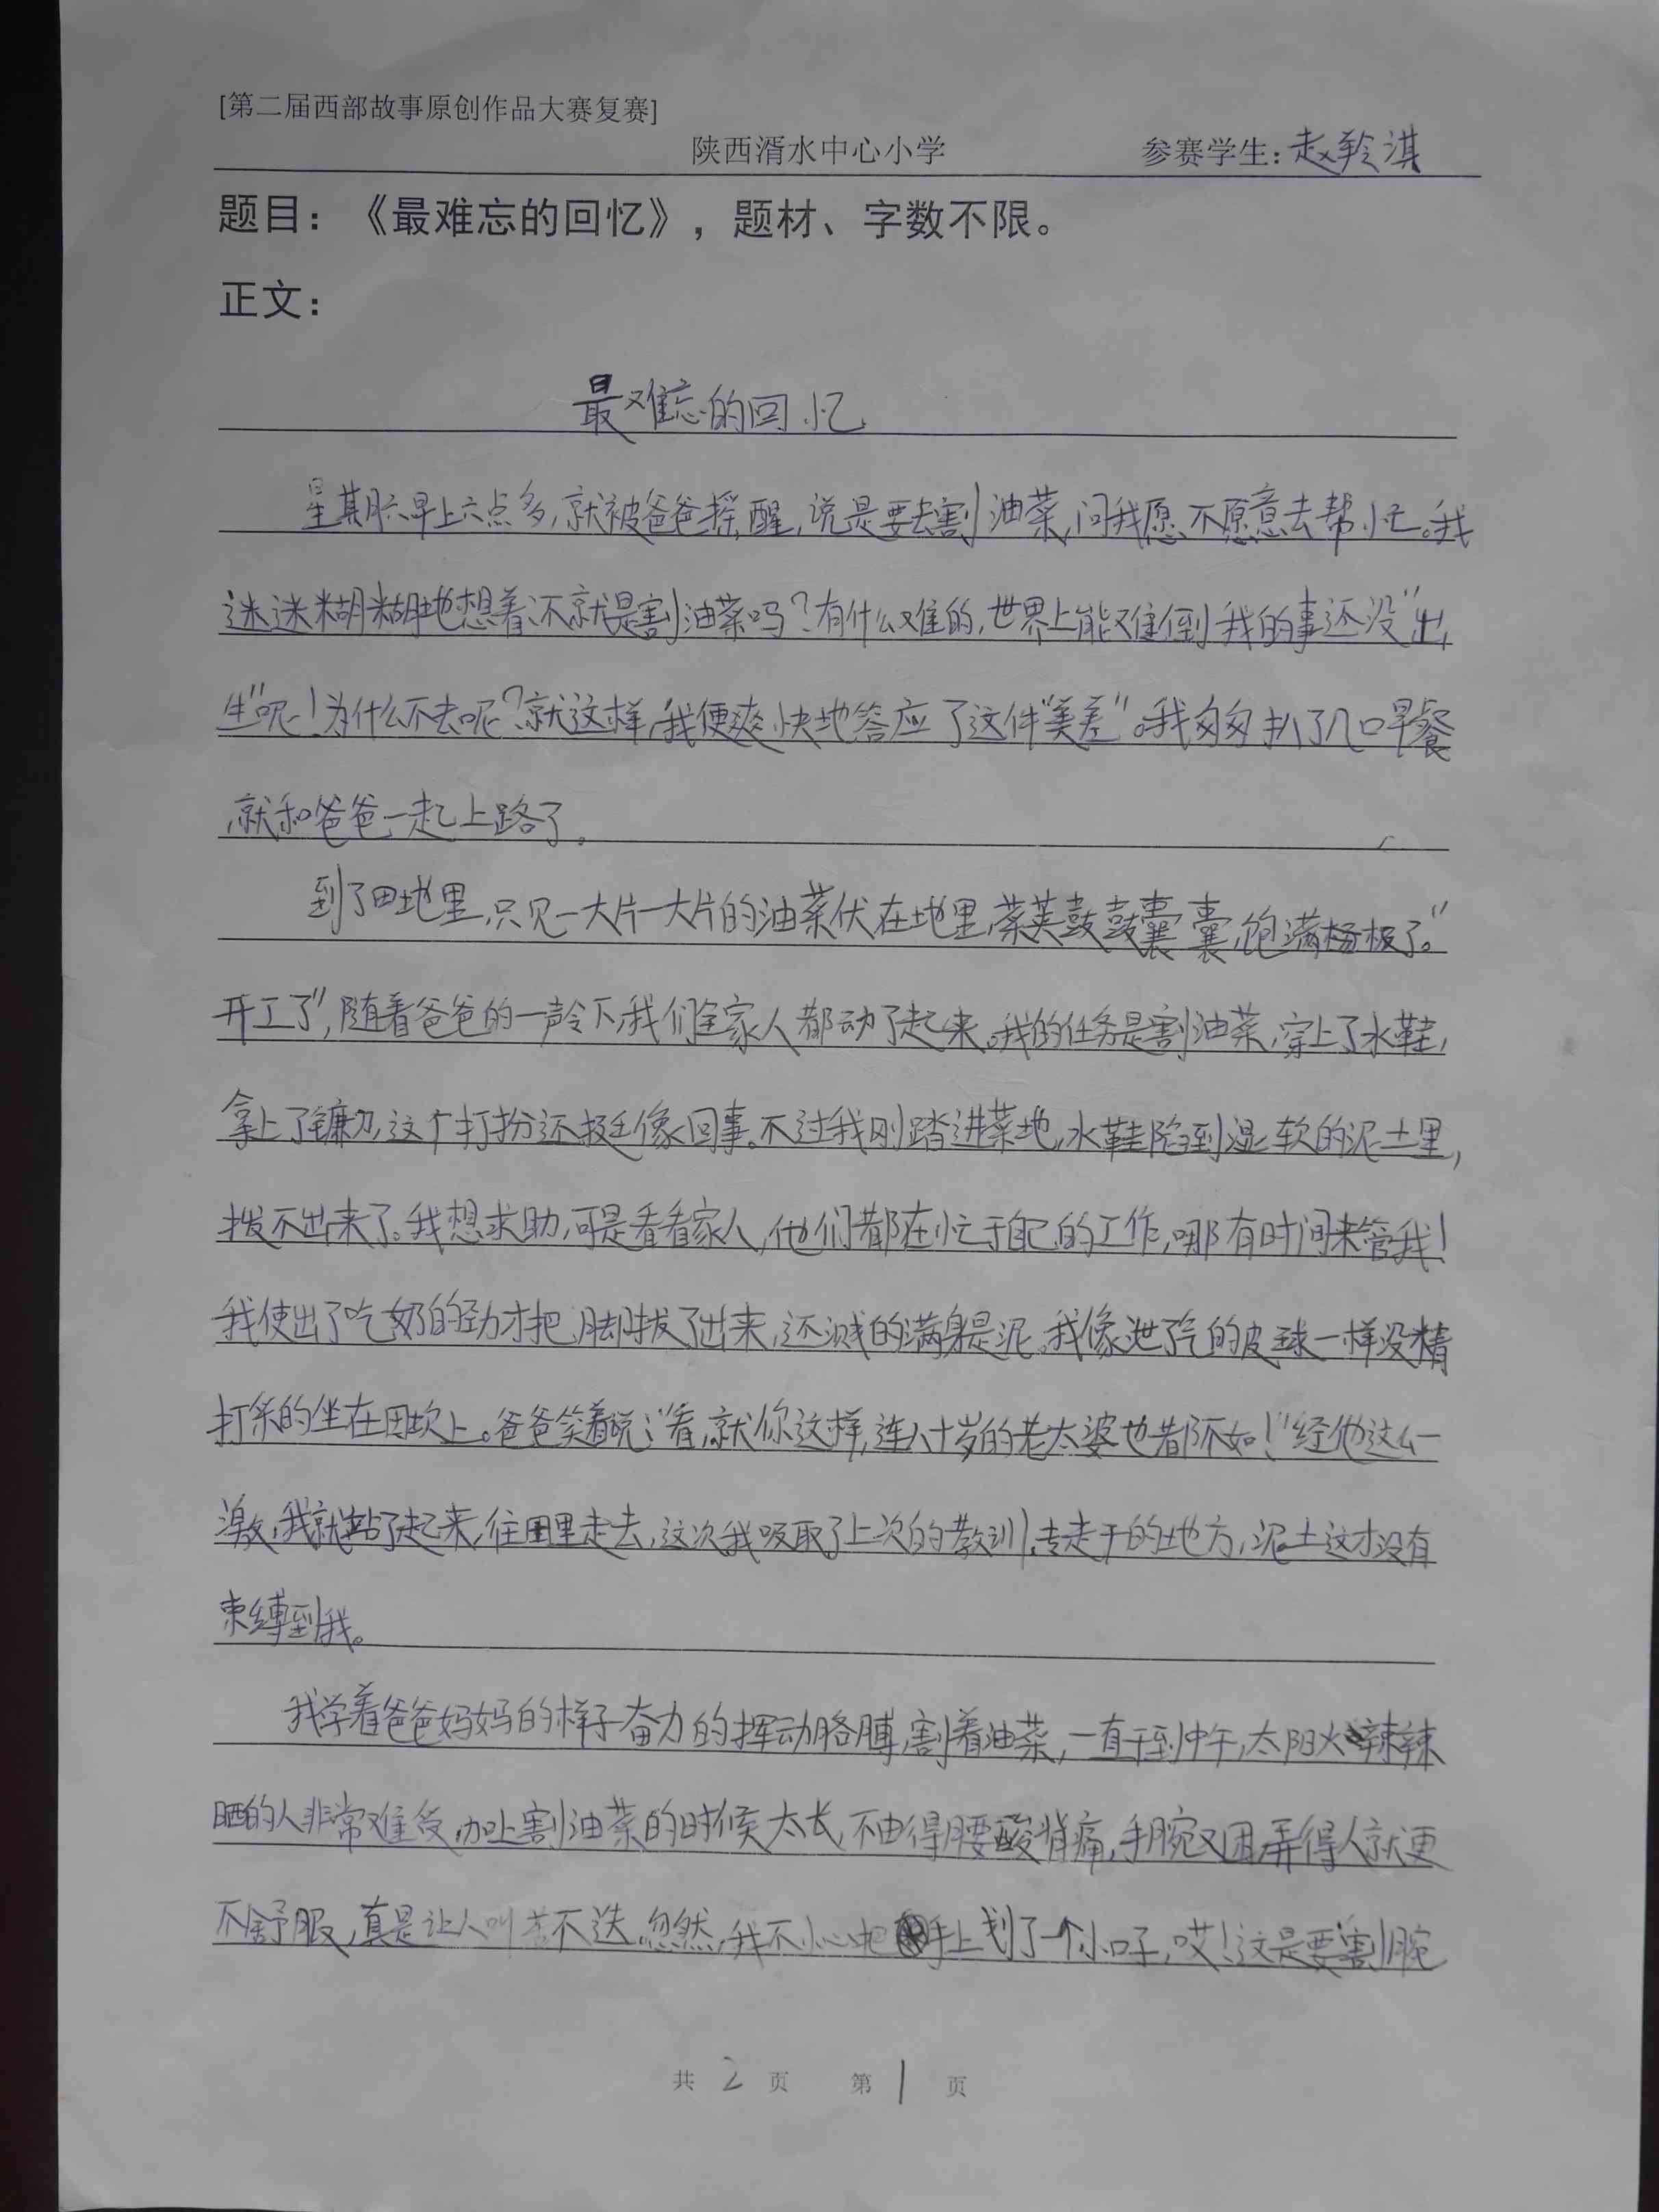 [第二届西部故事原创作品大赛复赛]
陕西湑水中心小学 参赛学生：赵羚淇
题目：《最难忘的回忆》，题材、字数不限。
正文：
最难忘的回忆
星期六早上六点多，就被爸爸摇醒，说是要去割油菜，问我愿不愿意去帮忙。我
迷迷糊糊地想着，不就是割油菜吗？有什么难的，世界上能难倒我的事还没“出
生”呢！为什么不去呢？就这样，我便爽快地答应了这件“美差”。我匆匆扒了几口早餐
就和爸爸一起上路了。
到了田地里，只见一大片一大片的油菜伏在地里，菜荚鼓鼓囊囊，饱满极了。“
开工了”，随着爸爸的一声令下，我们全家人都动了起来。我的任务是割油菜，穿上了水鞋，
拿上了镰刀，这个打扮还挺像回事。不过我刚踏进菜地，水鞋陷到湿软的泥土里，
拨不出来了。我想求助，可是看看家人，他们都在忙于自己的工作，哪有时间来管我！
我使出了吃奶的劲才把脚拔了出来，还溅的满身是泥。我像泄了气的皮球一样没精
打采的坐在田坎上。爸爸笑着说：“看，就你这样，连八十岁的老太婆也都不如！”经他这么一
激，我就站了起来，往田里走去，这次我吸取了上次的教训，专走干的地方，泥土这才没有
束缚到我。
我学着爸爸妈妈的样子奋力的挥动胳膊，割着油菜，一直干到中午，太阳火辣辣
晒的人非常难受，加上割油菜的时候太长，不由得腰酸背痛，手腕又困，弄得人就更
不舒服，真是让人叫苦不迭。忽然，我不小心把手上划了一个小口子，哎！这是要割腕
共2页 第1页